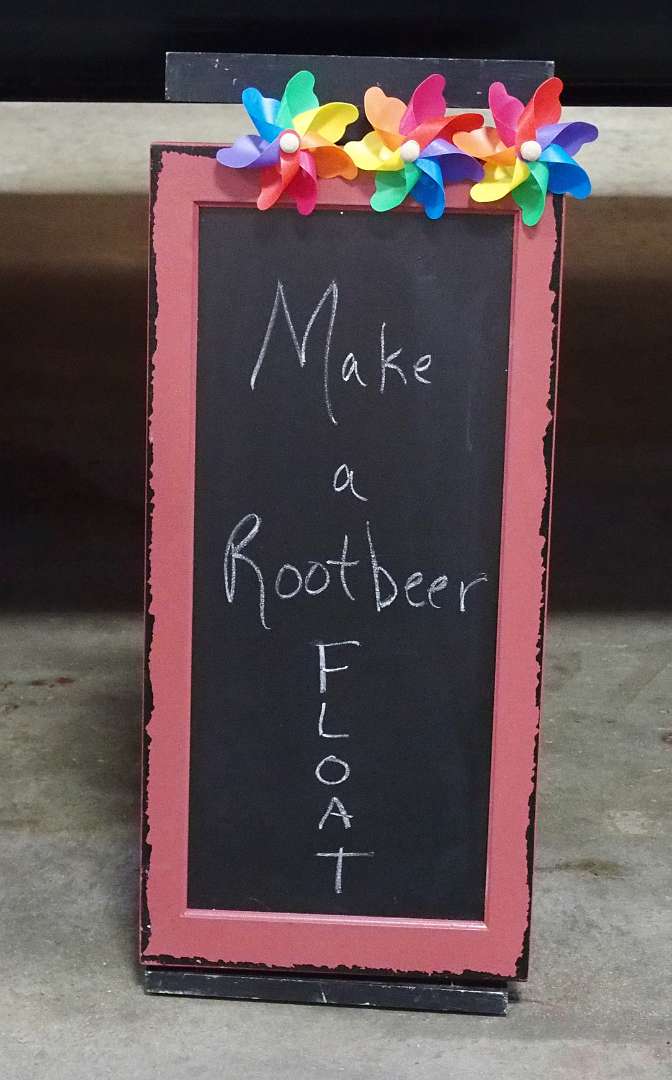 Make
a
Rootbeer
F
L
O
A
T